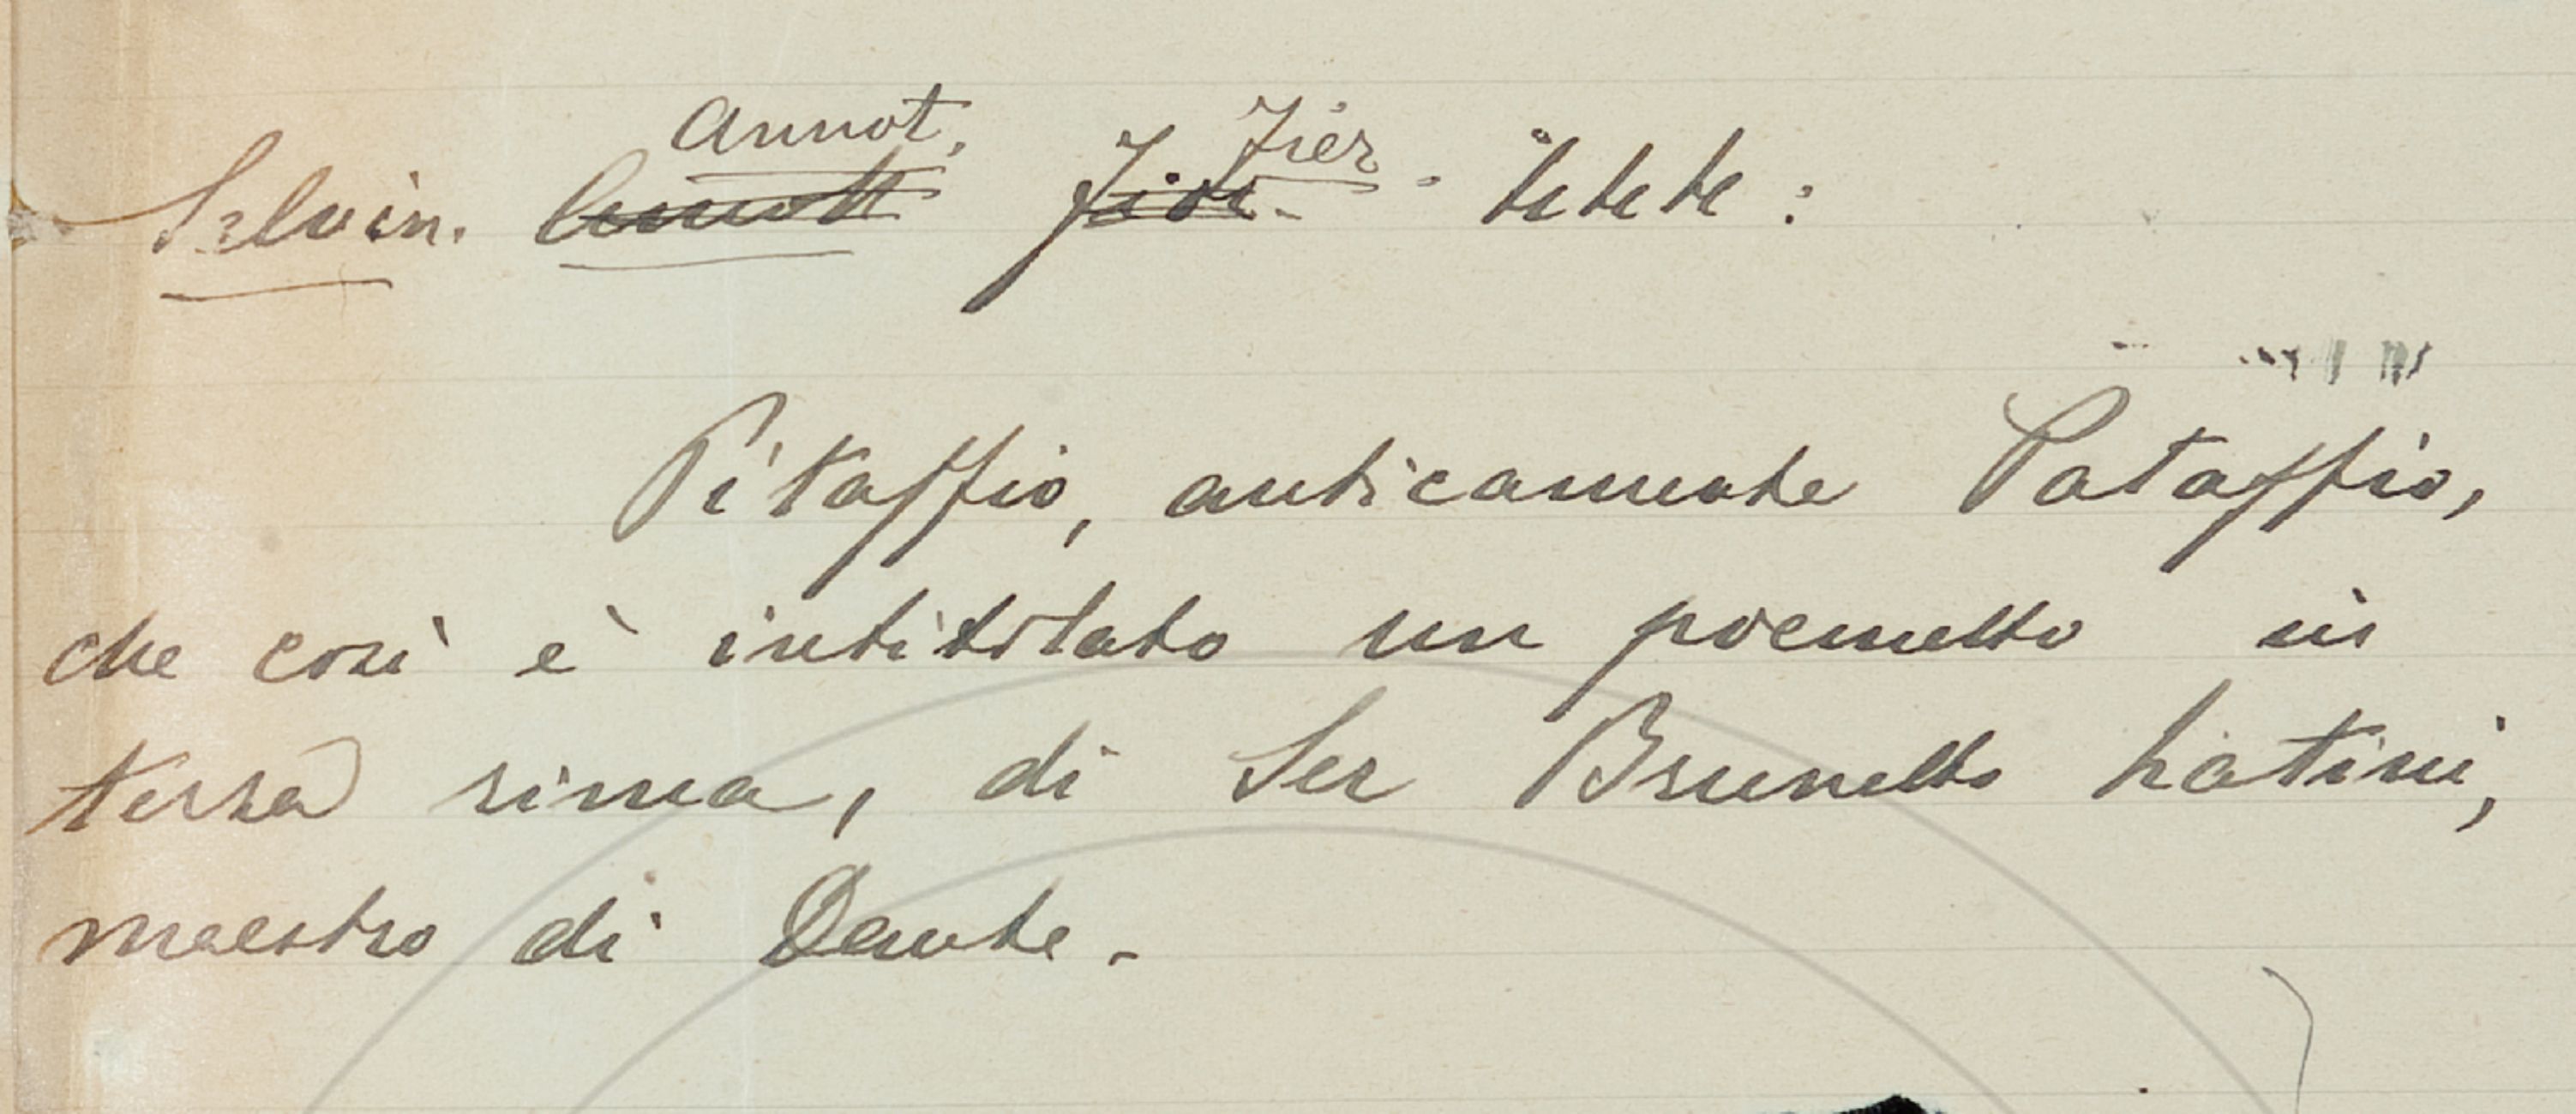 Annot. Fier.
Salvin.
Pitaffio, anticamente Pataffio,
che così è intitolato un poemetto in
terza rima, di Ser Brunetto Latini,
maestro di Dante.